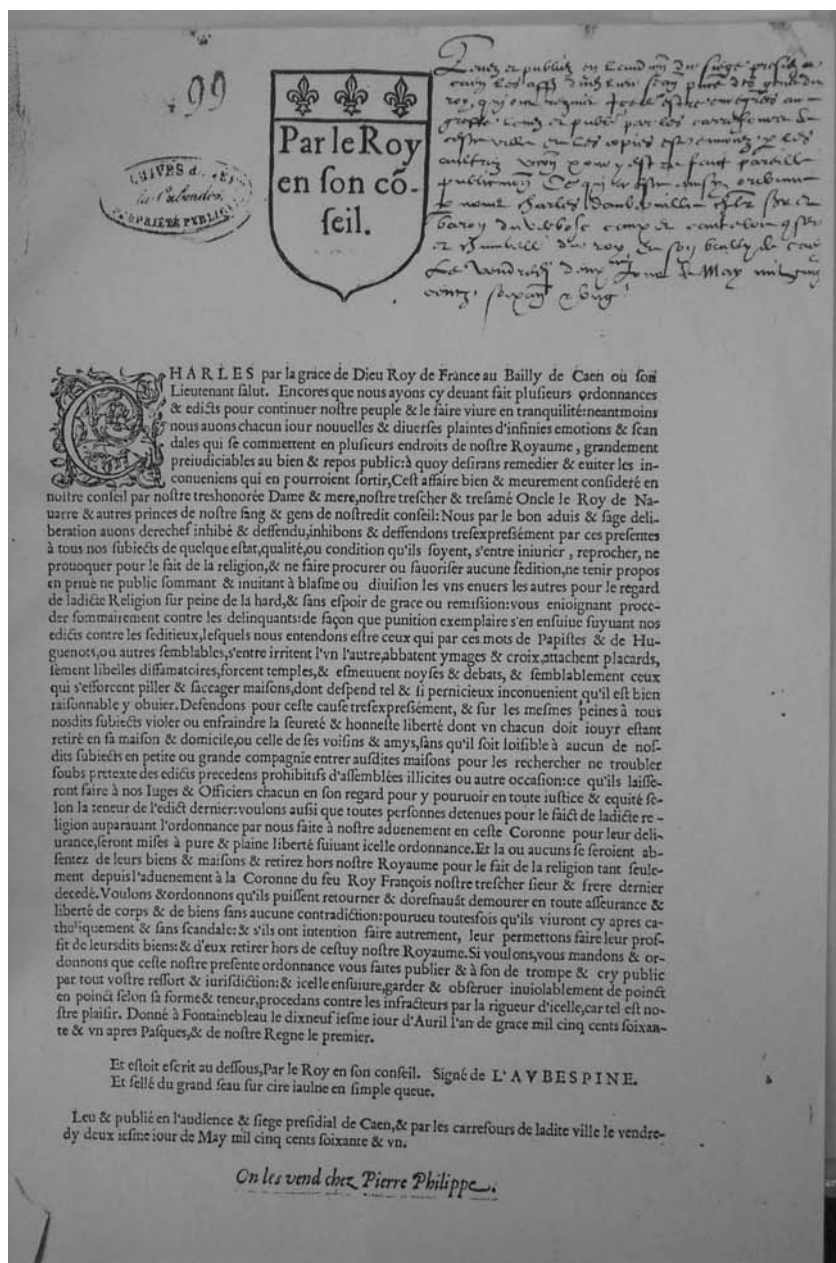 99
Par le Roy
en ſon cõ-
ſeil.
CHARLES par la grace de Dieu Roy de France au Bailly de Caen où ſon
Lieutenant ſalut. Encores que nous ayons cy deuant fait pluſieurs ordonnances
& edicts pour continuer noſtre peuple & le faire viure en tranquilité: neantmoins
nous auons chacun iour nouuelles & diuerſes plaintes d'infinies emotions & ſcan
dales qui ſe commettent en pluſieurs endroits de noſtre Royaume, grandement
preiudiciables au bien & repos public: à quoy deſirans remedier & euiter les in-
conueniens qui en pourroient ſortir, Ceſt affaire bien & meurement conſideré en
noſtre conſeil par noſtre treshonorée Dame & mere, noſtre treſcher & treſamé Oncle le Roy de Na-
uarre & autres princes de noſtre ſang & gens de noſtredit conſeil: Nous par le bon aduis & ſage deli-
beration auons derechef inhibé & deffendu, inhibons & deffendons treſexpreſsément par ces preſentes
à tous nos ſubiects de quelque eſtat, qualité, ou condition qu'ils ſoyent, s'entre iniurier, reprocher, ne
prouoquer pour le fait de la religion, & ne faire procurer ou fauoriſer aucune ſedition, ne tenir propos
en priué ne public ſommant & inuitant à blaſme ou diuiſion les vns enuers les autres pour le regard
de ladicte Religion ſur peine de la hard, & ſans eſpoir de grace ou remiſsion: vous enioignant proce-
der ſommairement contre les delinquants: de façon que punition exemplaire s'en enſuiue ſuyuant nos
edicts contre les ſeditieux, leſquels nous entendons eſtre ceux qui par ces mots de Papiſtes & de Hu-
guenots, ou autres ſemblables, s'entre irritent l'vn l'autre, abbatent ymages & croix, attachent placards,
ſement libelles diffamatoires, forcent temples, & eſmeuuent noyſes & debats, & ſemblablement ceux
qui s'efforcent piller & ſaccager maiſons, dont deſpend tel & ſi pernicieux inconuenient qu'il eſt bien
raiſonnable y obuier. Defendons pour ceſte cauſe treſexpreſsément, & ſur les meſmes peines à tous
noſdits ſubiects violer ou enfraindre la ſeureté & honneſte liberté dont vn chacun doit iouyr eſtant
retiré en ſa maiſon & domicile, ou celle de ſes voiſins & amys, ſans qu'il ſoit loiſible à aucun de noſ-
dits ſubiects en petite ou grande compagnie entrer auſdites maiſons pour les rechercher ne troubler
ſoubs pretexte des edicts precedens prohibitifs d'aſſemblées illicites ou autre occaſion: ce qu'ils laiſſe-
ront faire à nos Iuges & Officiers chacun en ſon regard pour y pouruoir en toute iuſtice & equité ſe-
lon la teneur de l'edict dernier: voulons auſsi que toutes perſonnes detenues pour le faict de ladicte re-
ligion auparauant l'ordonnance par nous faite à noſtre aduenement en ceſte Coronne pour leur deli-
urance, ſeront miſes à pure & plaine liberté ſuiuant icelle ordonnance. Et la ou aucuns ſe ſeroient ab-
ſentez de leurs biens & maiſons & retirez hors noſtre Royaume pour le fait de la religion tant ſeule-
ment depuis l'aduenement à la Coronne du feu Roy François noſtre treſcher ſieur & frere dernier
decedé. Voulons & ordonnons qu'ils puiſſent retourner & doreſnauãt demourer en toute aſſeurance &
liberté de corps & de biens ſans aucune contradiction: pourueu toutesfois qu'ils viuront cy apres ca-
tholiquement & ſans ſcandale: & s'ils ont intention faire autrement, leur permettons faire leur prof-
fit de leurſdits biens: & d'eux retirer hors de ceſtuy noſtre Royaume. Si voulons, vous mandons & or-
donnons que ceſte noſtre preſente ordonnance vous faites publier & à ſon de trompe & cry public
par tout voſtre reſſort & iuriſdiction: & icelle enſuiure, garder & obſeruer inuiolablement de poinct
en poinct ſelon ſa forme & teneur, procedans contre les infracteurs par la rigueur d'icelle, car tel eſt no-
ſtre plaiſir. Donné à Fontainebleau le dixneuf ieſme iour d'Auril l'an de grace mil cinq cents ſoixan-
te & vn apres Paſques, & de noſtre Regne le premier.
Et eſtoit eſcrit au deſſous, Par le Roy en ſon conſeil. Signé de L'AVBESPINE.
Et ſellé du grand ſeau ſur cire iaulne en ſimple queue.
Leu & publié en l'audience & ſiege preſidial de Caen, & par les carrefours de ladite ville le vendre-
dy deux ieſme iour de May mil cinq cents ſoixante & vn.
On les vend chez Pierre Philippe.